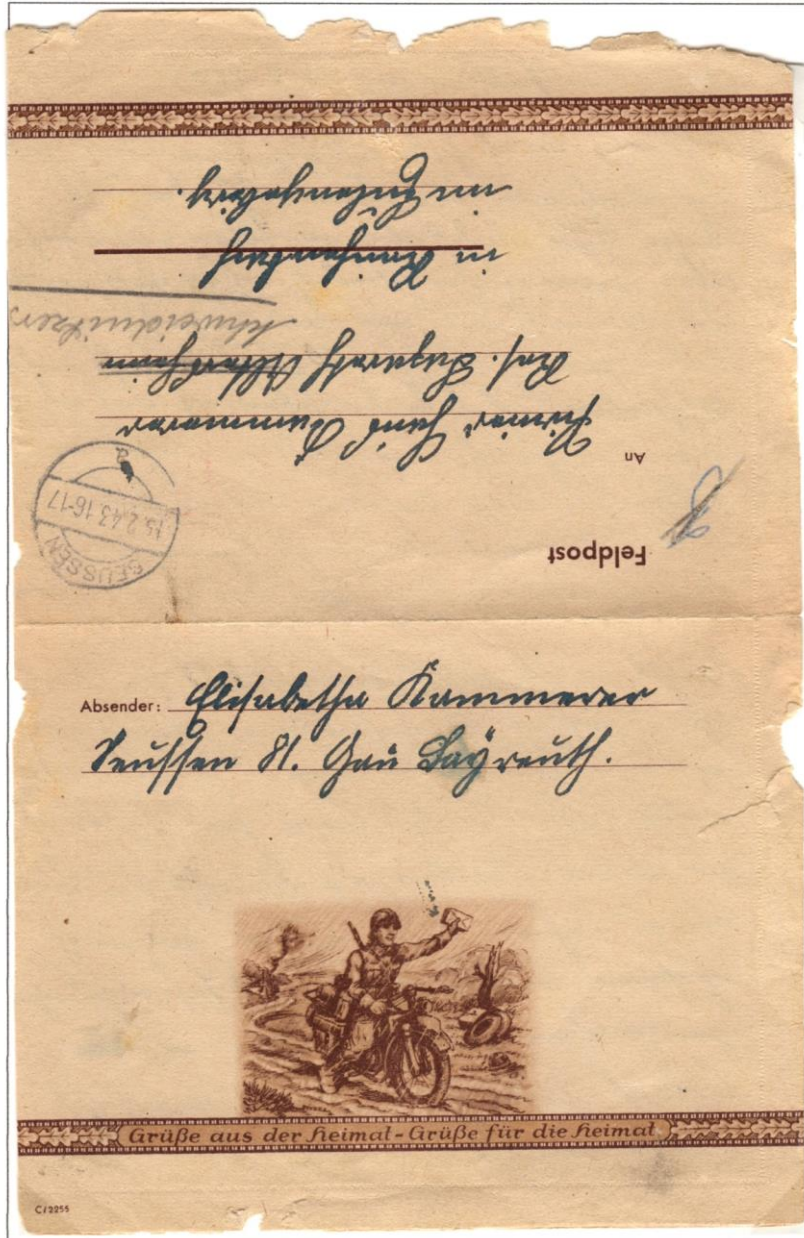 Feldpost
An
Hans Kammerer
Res. Lazarett
Schweidnitzer
in Reichenbach
im Eulengebirg.
SEUSSEN
15.2.43.16-17
a
Absender: Elisabetha Kammerer
Seussen Gau Bayreuth.
Grüße aus der Heimat - Grüße für die Heimat
C/2255